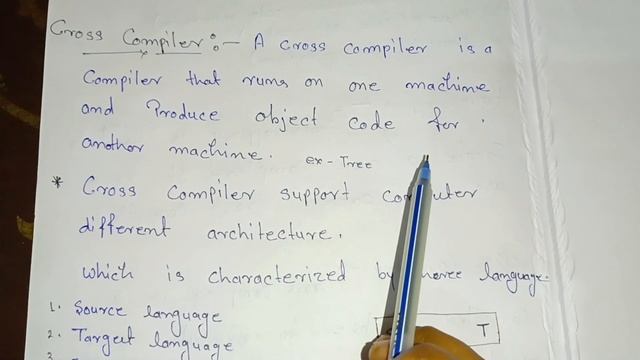 Cross Compiler :- A cross compiler is a
Compiler that runs on one machine
and Produce object code for
another machine. ex - Tree
* Cross Compiler support
different architecture.
which is characterized by language.
1. Source language
2. Target language
3
T